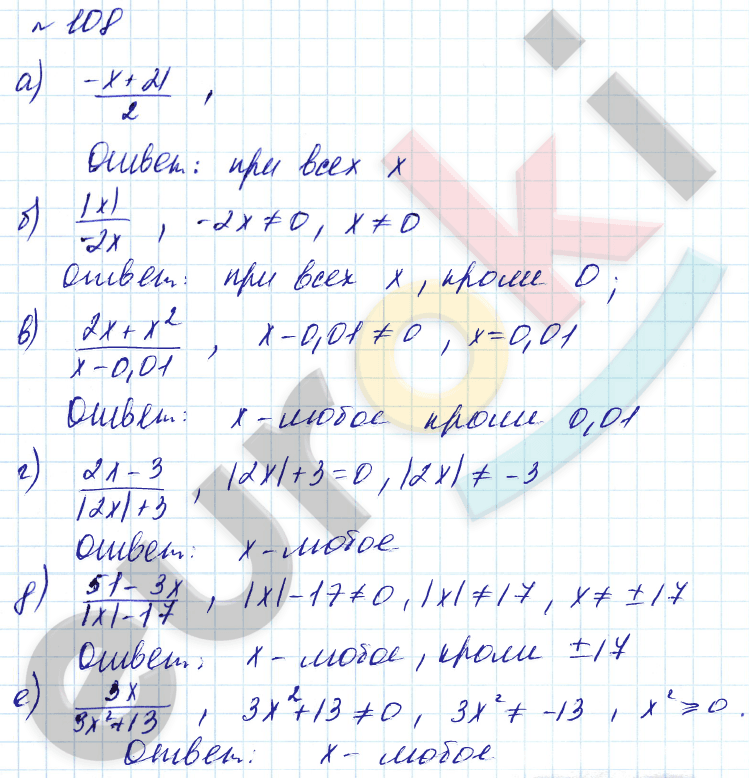 № 108
а) (-x+21)/2 ,
Ответ: при всех x
б) |x|/(-2x) , -2x≠0, x≠0
Ответ: при всех x, кроме 0;
в) (2x+x²)/(x-0,01) , x-0,01≠0 , x=0,01
Ответ: x-любое кроме 0,01
г) (2x-3)/(|2x|+3) , |2x|+3=0, |2x|≠-3
Ответ: x-любое
д) (51-3x)/(|x|-17) , |x|-17≠0, |x|≠17, x≠±17
Ответ: x-любое, кроме ±17
е) 3x/(3x²+13) , 3x²+13≠0, 3x²≠-13, x²≥0.
Ответ: x-любое
euroki